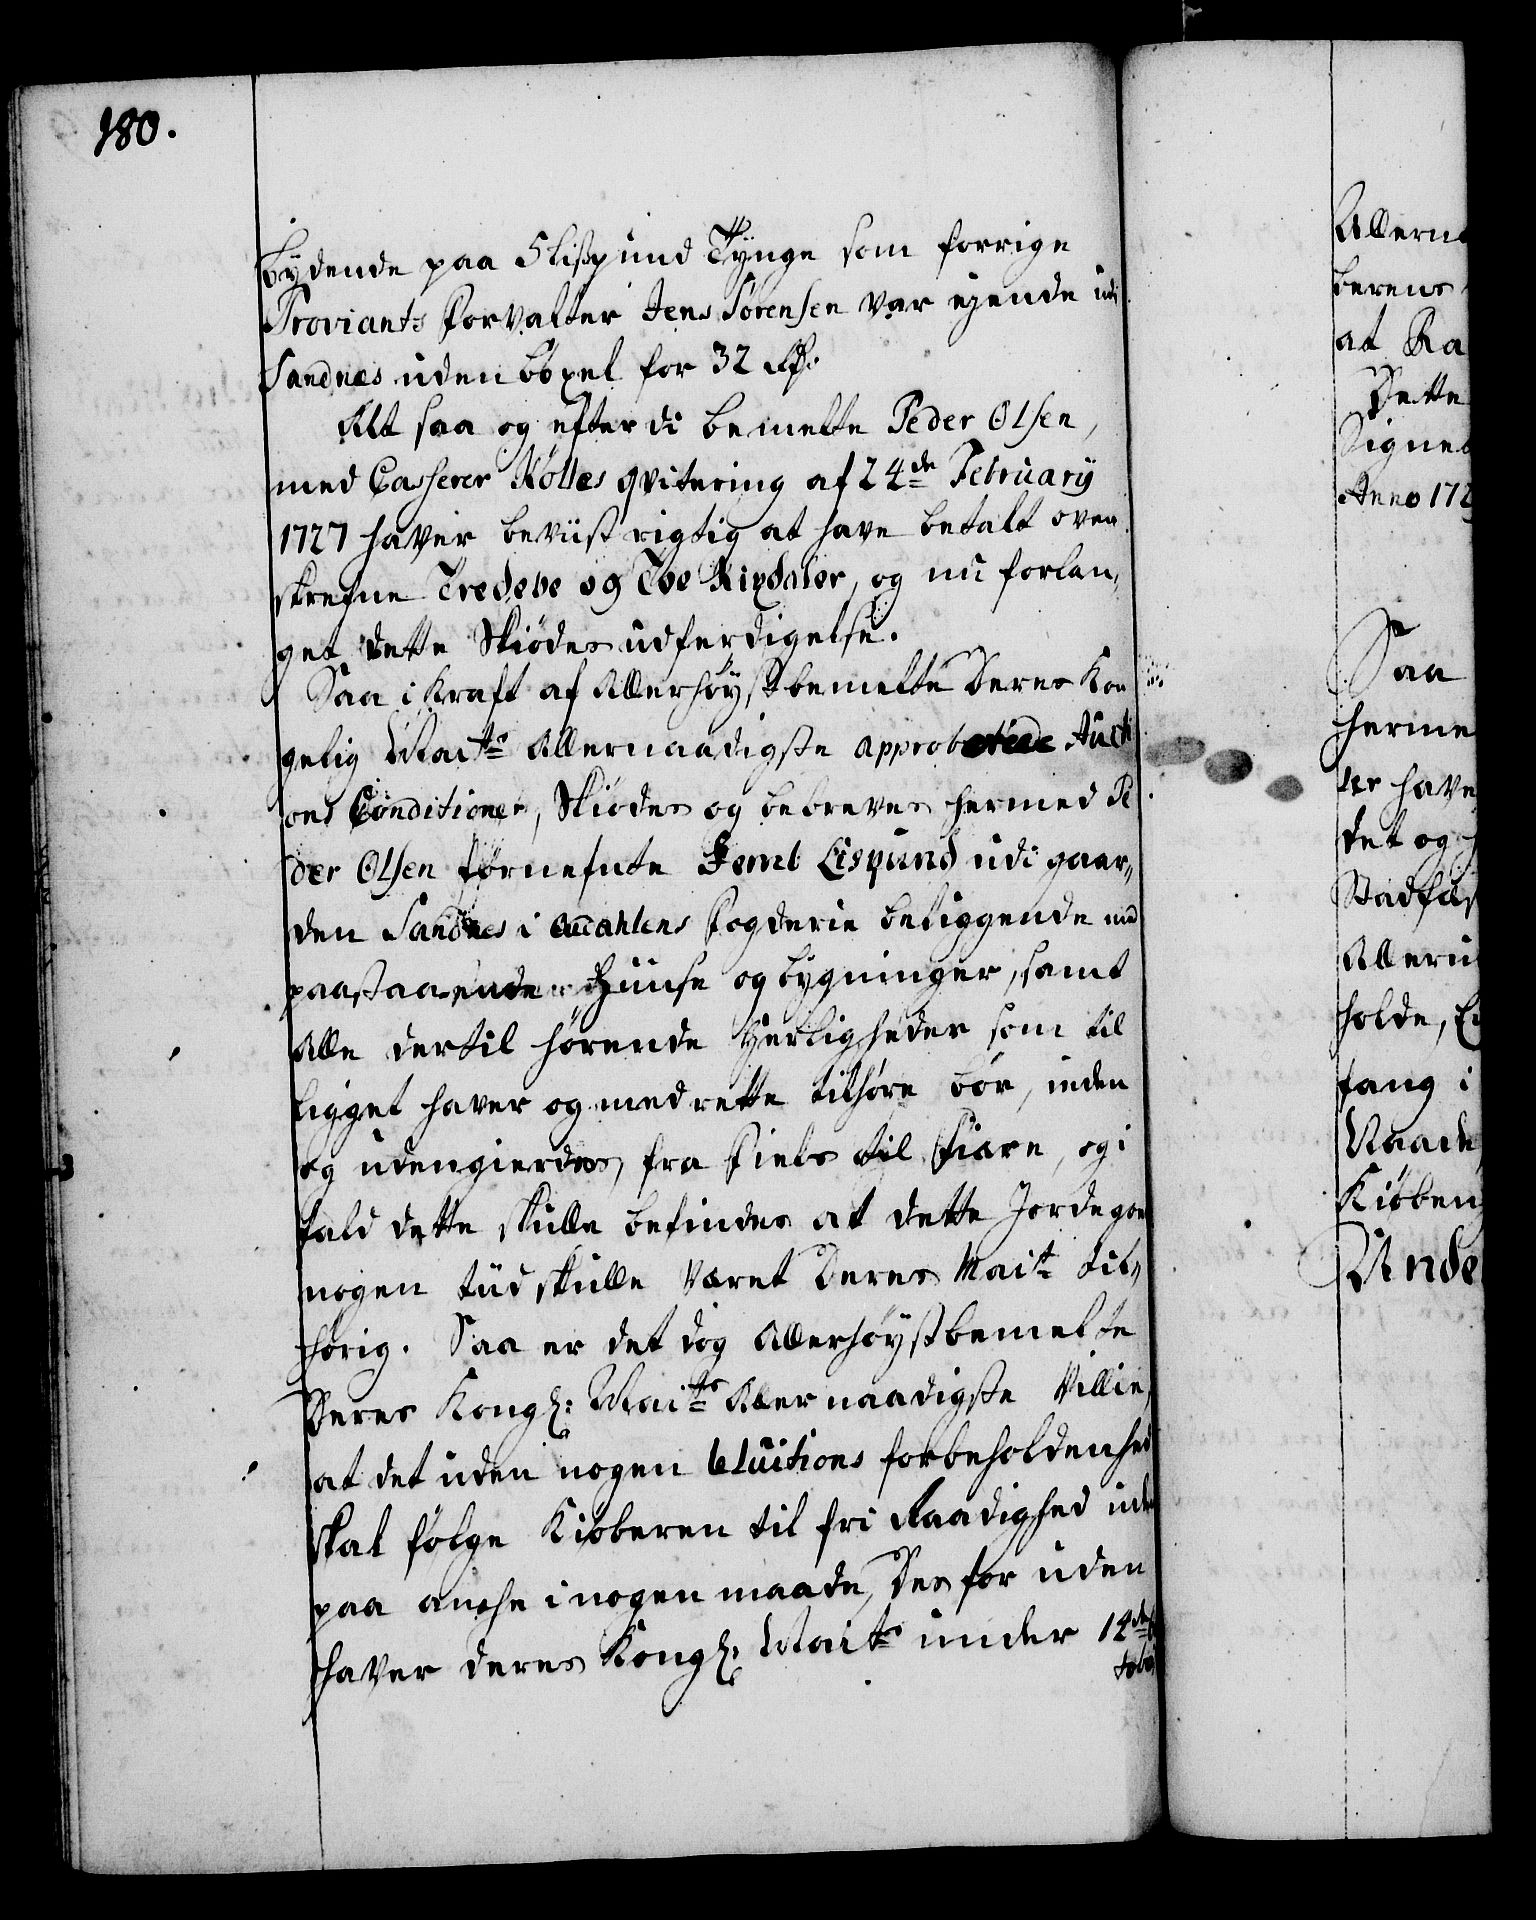 180.
Lydende paa 5 Lißpund Tynge som forrige
Proviants Forvalter Jens Sørensen var ejende udi
Sandnes uden böxel for 32 Rdr.
Alt saa og efterdi bemelte Peder Olsen,
med Casserer Nölles qvitering af 24de February
1727 haver beviist rigtig at have betalt oven
skrefne Tredeve og Tve Rixdaler, og nu forlan„
get dette Skiödes udferdigelse.
Saa i Kraft af Allerhöystbemelte Deres Kon
gelig Maits Allernaadigste approberede Aucti
ons Conditioner, Skiödes og bebreves hermed Pe
der Olsen fornefnte Femb Lispund udi gaar„
den Sandnes i Fogderie beliggende med
paastaaende Huuse og bygninger, samt
Alle dertil hörende Herligheder som til
ligget haver og med rette tilhöre bör, inden
og uden gierdes, fra Fields til Fiære, og i
fald dette skulle befindes at dette Jordegods
nogen tiid skulle været Deres Mait til„
hörig. Saa er det dog Allerhöystbemelte
Deres Kongl: Maits Allernaadigste Villie,
at det uden nogen reluitions forbeholdenhed
skal fölge Kiöberen til fri Raadighed uden
paa anche i nogen maade, Des for uden
haver deres Kongl: Maits under 14de
Allern
berens
at Ra
Dette
Signet
Anno 172
Saa
herme
ter have
det og
Stadfæs
Alleru
holde, E
fang i
Naade
Kiöben
Unde